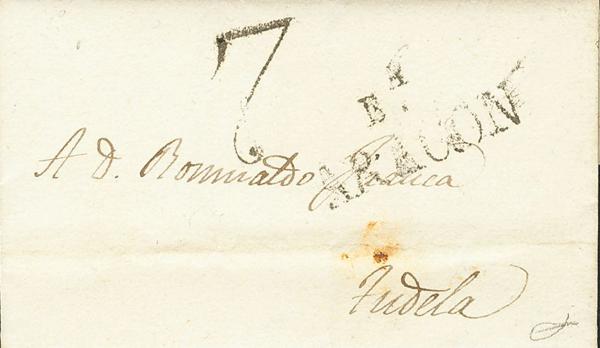 7
B 4
ARAGON
A D. Romualdo Franca
Tudela